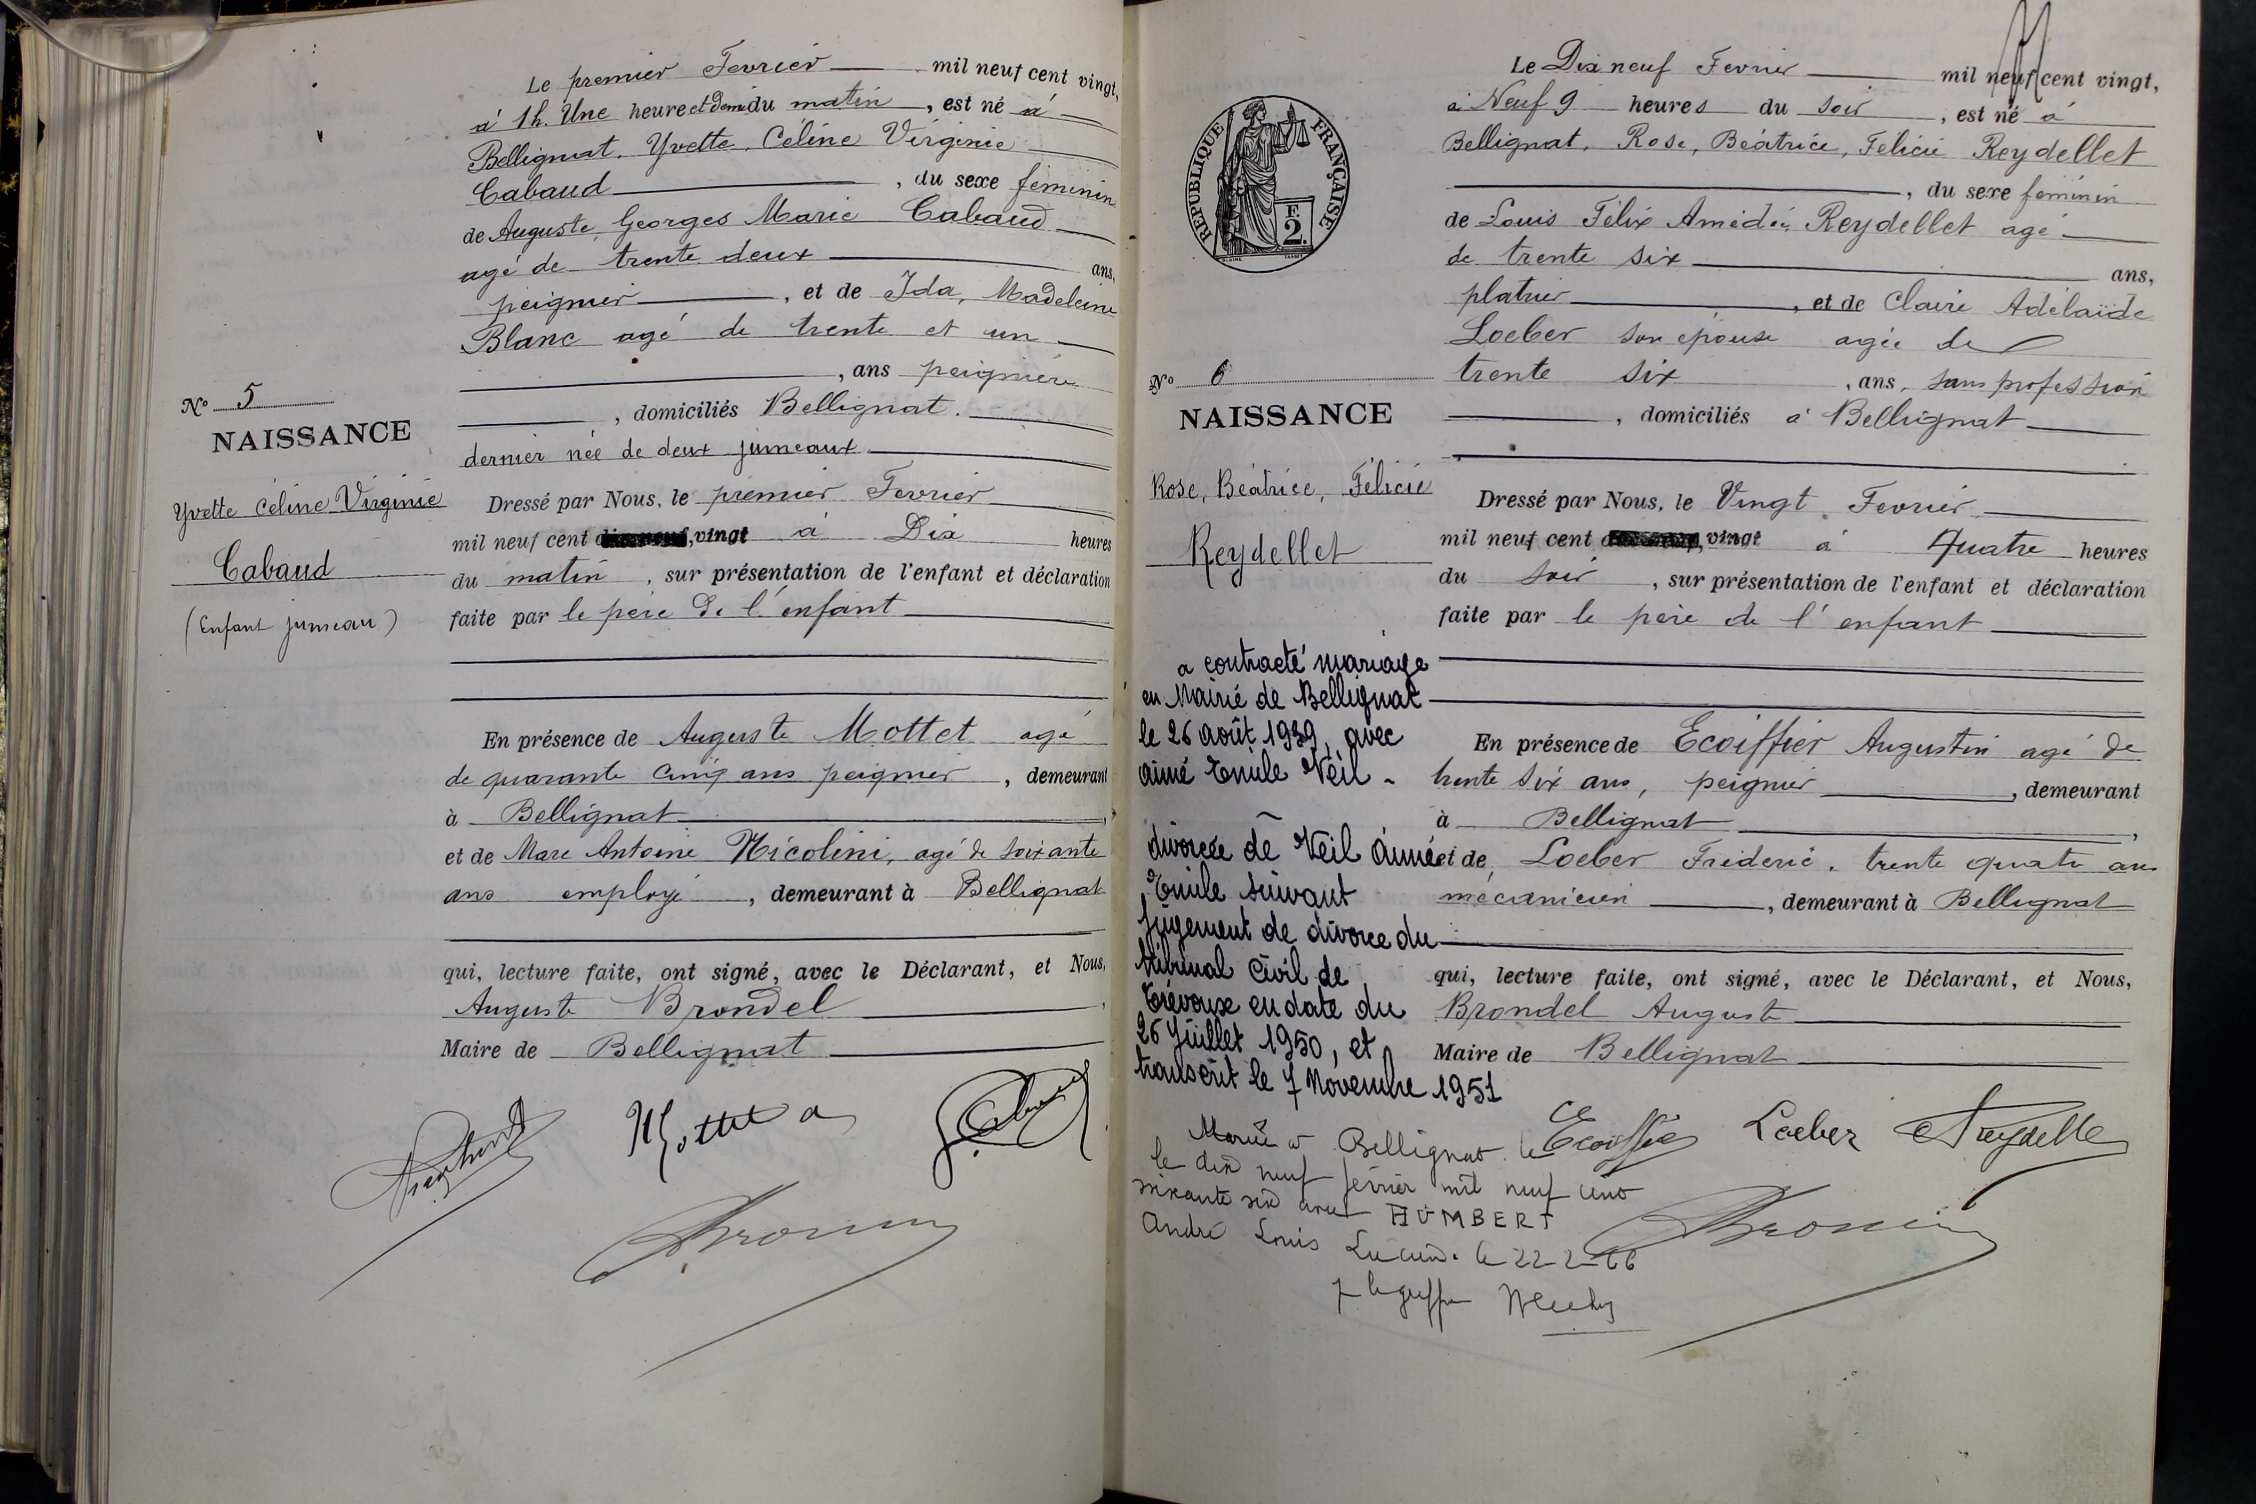 Le premier Fevrier mil neuf cent vingt,
à 1h. Une heure et demi du matin, est né à
Bellignat. Yvette. Céline Virginie
Cabaud, du sexe féminin
de Auguste, Georges Marie Cabaud
agé de trente deux ans,
peignier, et de Ida, Madeleine
Blanc agé de trente et un
, ans peignière
, domiciliés Bellignat.
dernier née de deux jumeaux
Nº 5
NAISSANCE
Yvette Céline Virginie
Cabaud
(Enfant jumeau)
Dressé par Nous, le premier Fevrier
mil neuf cent vingt à Dix heures
du matin, sur présentation de l'enfant et déclaration
faite par le père de l'enfant
En présence de Auguste Mottet agé
de quarante cinq ans peignier, demeurant
à Bellignat
et de Marc Antoine Nicolini, agé de soixante
ans employé, demeurant à Bellignat
qui, lecture faite, ont signé, avec le Déclarant, et Nous,
Auguste Brondel
Maire de Bellignat
Mottet a
Le Dix neuf Fevrier mil neuf cent vingt,
à Neuf 9 heures du soir, est né à
Bellignat. Rose, Béatrice, Félicie Reydellet
, du sexe féminin
de Louis Félix Amédée Reydellet agé
de trente six ans,
platrier, et de Claire Adélaïde
Loeber son épouse agée de
trente six, ans, sans profession
, domiciliés à Bellignat
RÉPUBLIQUE FRANÇAISE
F.
2.
Nº 6
NAISSANCE
Rose, Béatrice, Félicie
Reydellet
Dressé par Nous, le Vingt Fevrier
mil neuf cent vingt à Quatre heures
du soir, sur présentation de l'enfant et déclaration
faite par le père de l'enfant
En présence de Ecoiffier Augustin agé de
trente six ans, peignier, demeurant
à Bellignat,
et de Loeber Fréderic, trente quatre ans
mécanicien, demeurant à Bellignat
qui, lecture faite, ont signé, avec le Déclarant, et Nous,
Brondel Auguste
Maire de Bellignat
a contracté mariage
en Mairie de Bellignat
le 26 août 1939, avec
aimé Emile Veil.
divorcée de Veil Aimé
Emile suivant
jugement de divorce du
tribunal Civil de
Trévoux en date du
26 Juillet 1950, et
transcrit le 7 Novembre 1951
Ecoiffier Loeber Reydellet
Mariée à Bellignat le
le dix neuf février mil neuf cent
soixante six avec HUMBERT
André Louis Lucien. le 22-2-66